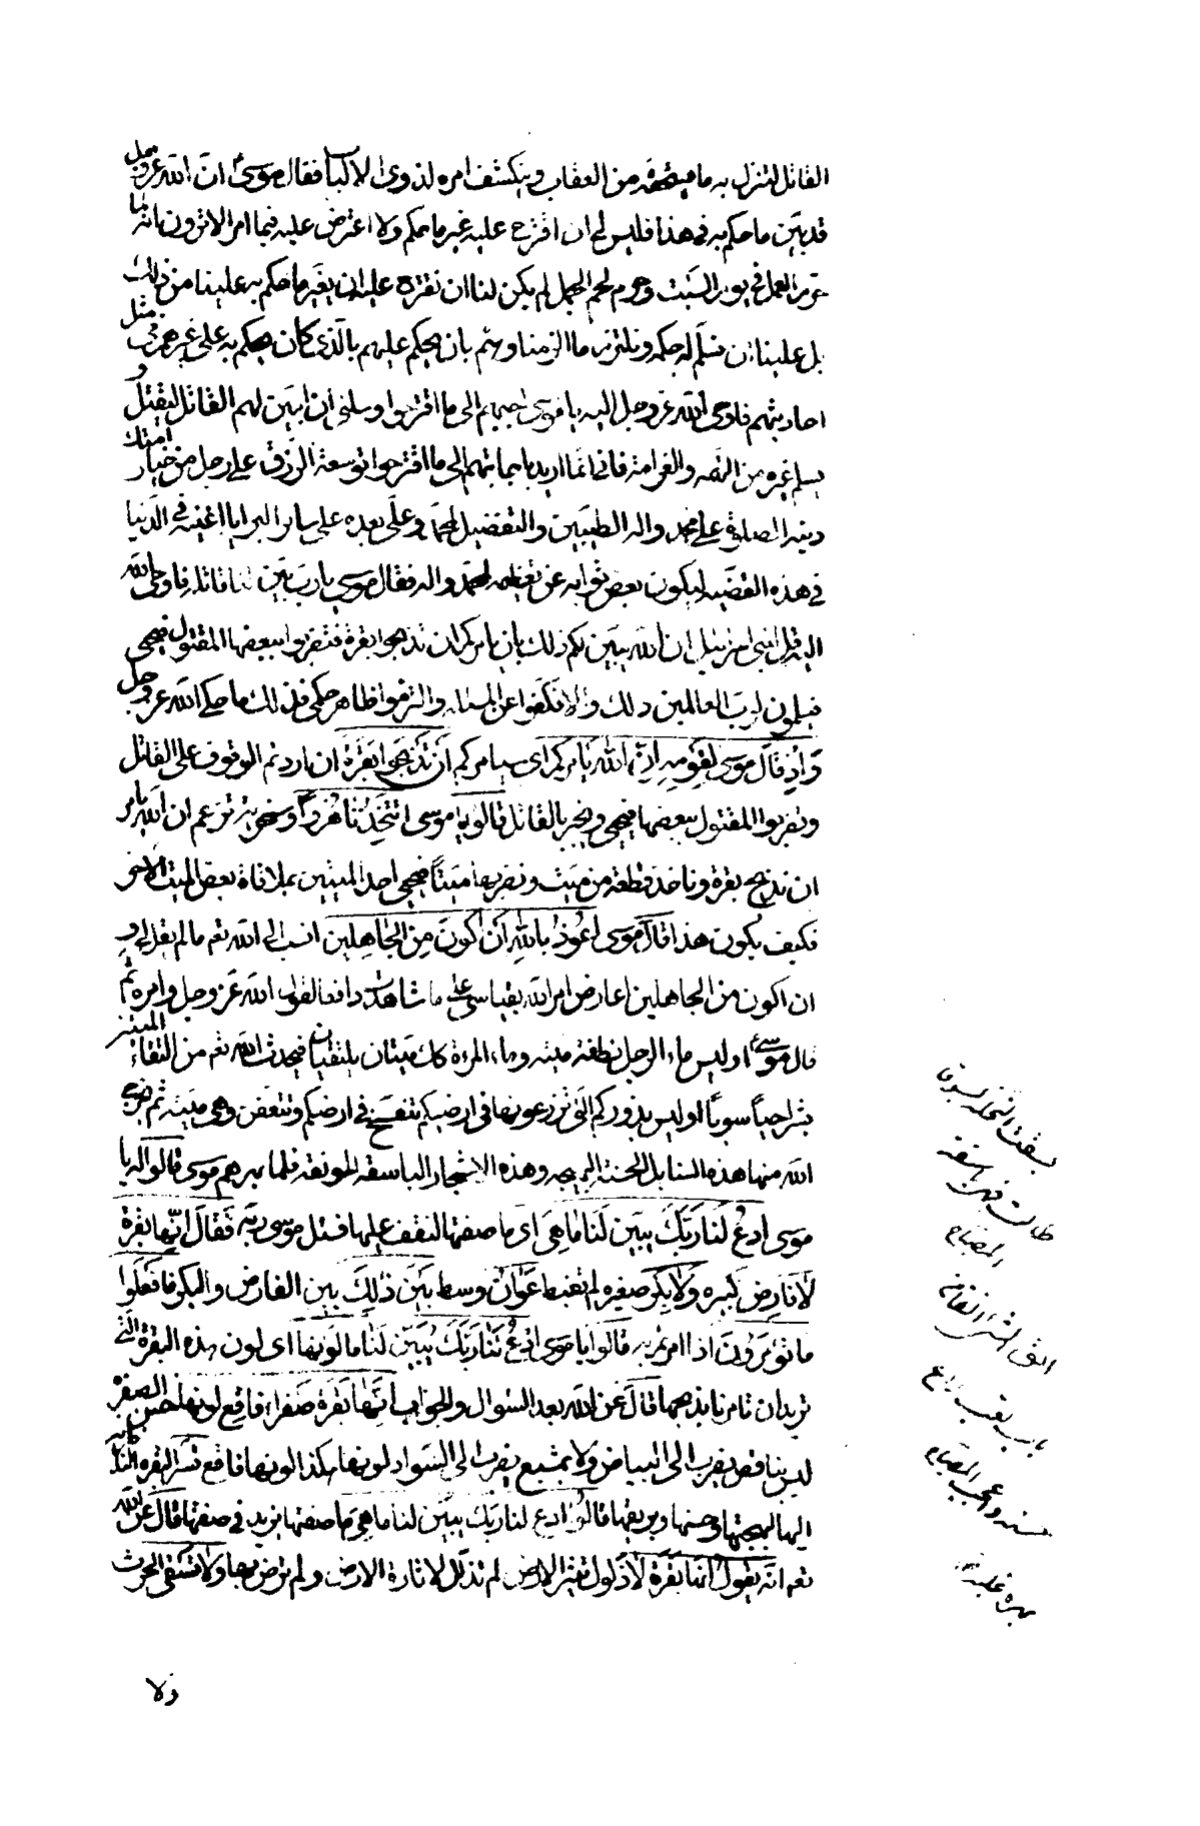 القاتل لتنزل به ما يستحقه من العقاب وينكشف امره لذوى الالباب فقال موسىٰ انّ الله عز وجل
قد بيّن ما حكم به فى هذا فليس لى ان اقترح عليه غير ما حكم ولا اعترض عليه فيما امر الا ترون انه لما
حرّم العمل فى يوم السّبت وحرم لحم الجمل لم يكن لنا ان نقترح عليه ان يغيّر ما حكم به علينا من ذلك
بل علينا ان نسلّم له حكمه ونلتزم ما الزمنا وهمّ بان يحكم عليهم بالّذى كان يحكم به على غيرهم فى مثل
حادثتهم فاوحى الله عز وجل اليه يا موسى اجبهم الى ما اقترحوا وسلنى ان ابيّن لهم القاتل ليقتل و
يسلم غيره من التهمه والغرامة فانى انّما اريد باجابتهم الى ما اقترحوا توسعة الرّزق على رجل من خيار امتك
دينه الصلوة على محمد واله الطيّبين والتفضيل لمحمّد وعلى بعده على ساير البرايا اغنيه فى الدّنيا
فى هذه القضيّه ليكون بعض ثوابه عن تعظيمه لمحمد واله فقال موسى يا ربّ بيّن لنا قاتله فاوحى الله
اليه قل لبنى اسرئيل ان الله يبيّن لكم ذلك بان يامركم ان تذبحوا بقرة فتضربوا ببعضها المقتول فيحيى
فتسلمون لرب العالمين ذلك والا فكفّوا عن المسئله والتزموا ظاهر حكمى فذلك ما حكى الله عز وجل
وَاِذ قالَ موسى لقومه اِنّ الله يامركم اى سيامركم اَن تذبحوا بقرةً ان اردتم الوقوف على القاتل
وتضربوا المقتول ببعضها فيحيى ويخبر بالقاتل قالوا يا موسى اتتخذنا هُزواً وسخرية تزعم ان الله يامر
ان نذبح بقرة وناخذ قطعة من ميّت ونضرب بها ميّتاً فيحيى احد الميّتين بملاقاة بعض الميّت الاخر
فكيف يكون هذا قالَ موسى اعُوذ بالله اَن اكونَ مِن الجاهِلين انسب الى الله تعم ما لم يقل لى او
ان اكون من الجاهلين اعارض امر الله بقياسى على ما شاهدت دافعا لقول الله عز وجل وامره ثم
قال موسى ع اوليس ماء الرجل نطفة ميته وماء المرءة كك ميّتان يلتقيان فيحدث الله تعم من التقاء الميّتين
بشرا حياً سوياً اوليس بذوركم التى تزرعونها فى ارضيكم تتفسخ فى ارضيكم وتتعفن وهى ميّته ثم يخرج
الله منها هذه السنابل الحسنة البهيجه وهذه الاشجار الباسقه المونقه فلما بهرهم موسى قالوا له يا
موسى ادعُ لَنا ربّكَ يبيّن لَنا ما هِىَ اى ما صفتها لنقف عليها فسئل موسى ربّه فقالَ انّها بقرة
لا فارِض كبيره وَلا بِكر صغيره لم تغبط عَوان وسط بينَ ذلِكَ بين الفارض والبكر فافعَلوا
ما تؤمرون اذا امرتم به قالوا يا موسى ادعُ لنا ربّكَ يُبيّن لَنا ما لونها اى لون هذه البقرة التى
تريد ان تامرنا بذبحها قالَ عن الله بعد السّوال والجواب انّها بَقَرة صَفراء فاقِع لونها حسن الصفره
ليس بناقص يضرب الى البياض ولا بمشبع يضرب الى السّواد لونها هكذا لونها فاقع تسُر البقره النّاظرين
اليها لبهجتها وحسنها وبريقها قالوا ادع لنا ربّكَ يبيّن لنا ما هِىَ ما صفتها يزيد فى صفتها قالَ عن الله
تعم انّه يقول انّها بَقَرة لا ذَلول تثير الارض لم تذلّل لاثارة الارض ولم ترض بها ولا تسقى الحرث
ولا
بسقت النخلة بسوقا
طالت فهى باسقة
المصباح
انق الشئ انقا
باب تعب راع
حسنه واعجب المصباح
بهره غلبه